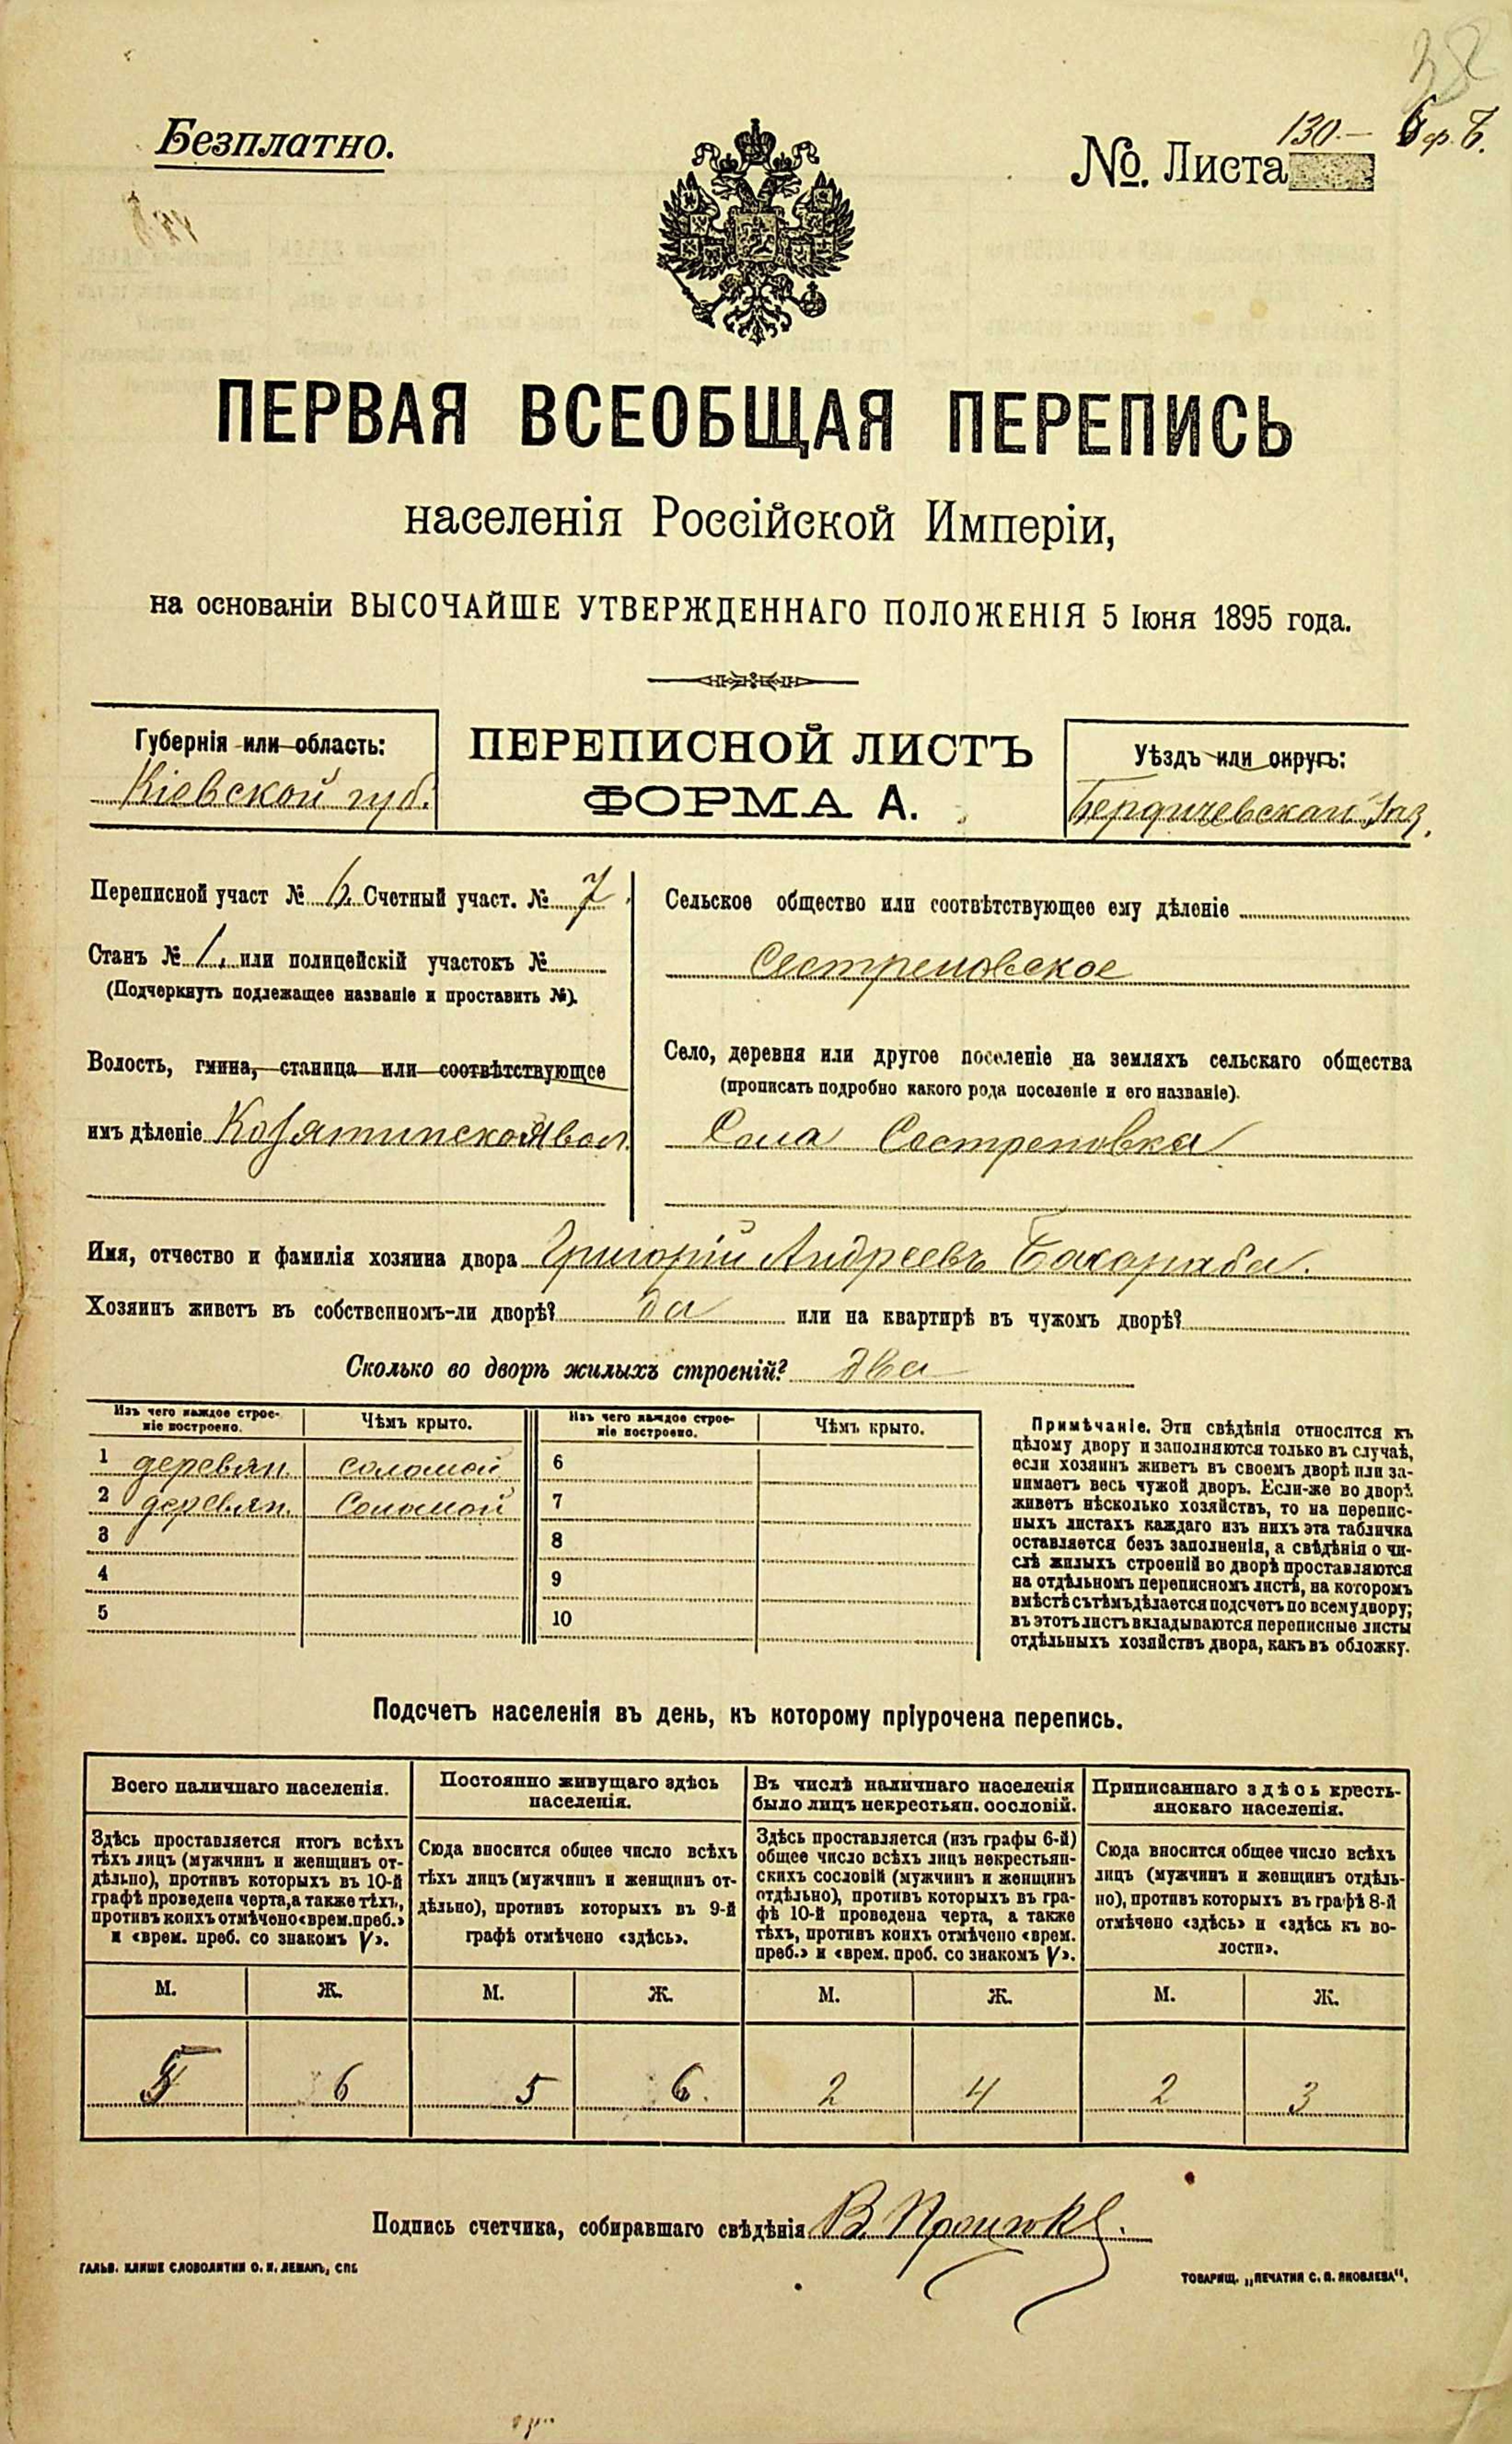 Безплатно.
130.—
№. Листа
ПЕРВАЯ ВСЕОБЩАЯ ПЕРЕПИСЬ
населенія Россійской Имперіи,
на основаніи ВЫСОЧАЙШЕ УТВЕРЖДЕННАГО ПОЛОЖЕНІЯ 5 Іюня 1895 года.
Губернія или область:
Кіевской губ.
ПЕРЕПИСНОЙ ЛИСТЪ
ФОРМА А.
Уѣздъ или округъ:
Переписной участ № Счетный участ. № 7
Станъ № 1, или полицейскій участокъ №
(Подчеркнуть подлежащее названіе и проставить №).
Волость, гмина, станица или соотвѣтствующее
имъ дѣленіе
Сельское общество или соотвѣтствующее ему дѣленіе
Сестреновское
Село, деревня или другое поселеніе на земляхъ сельскаго общества
(прописать подробно какого рода поселеніе и его названіе).
Села Сестреновка
Имя, отчество и фамилія хозяина двора Григорій Андреевъ
Хозяинъ живетъ въ собственномъ-ли дворѣ? да или на квартирѣ въ чужомъ дворѣ?
Сколько во дворѣ жилыхъ строеній? два
Изъ чего каждое строе-
ніе построено.
Чѣмъ крыто.
Изъ чего каждое строе-
ніе построено.
Чѣмъ крыто.
1 деревян. соломой 6
2 деревян. Соломой 7
3 8
4 9
5 10
Примѣчаніе. Эти свѣдѣнія относятся къ
цѣлому двору и заполняются только въ случаѣ,
если хозяинъ живетъ въ своемъ дворѣ или за-
нимаетъ весь чужой дворъ. Если-же во дворѣ
живетъ нѣсколько хозяйствъ, то на перепис-
ныхъ листахъ каждаго изъ нихъ эта табличка
оставляется безъ заполненія, а свѣдѣнія о чи-
слѣ жилыхъ строеній во дворѣ проставляются
на отдѣльномъ переписномъ листѣ, на которомъ
вмѣстѣ съ тѣмъ дѣлается подсчетъ по всему двору;
въ этотъ листъ вкладываются переписные листы
отдѣльныхъ хозяйствъ двора, какъ въ обложку.
Подсчетъ населенія въ день, къ которому пріурочена перепись.
Всего наличнаго населенія.
Здѣсь проставляется итогъ всѣхъ
тѣхъ лицъ (мужчинъ и женщинъ от-
дѣльно), противъ которыхъ въ 10-й
графѣ проведена черта, а также тѣхъ,
противъ коихъ отмѣчено «врем. преб.»
и «врем. преб. со знакомъ V».
Постоянно живущаго здѣсь
населенія.
Сюда вносится общее число всѣхъ
тѣхъ лицъ (мужчинъ и женщинъ от-
дѣльно), противъ которыхъ въ 9-й
графѣ отмѣчено «здѣсь».
Въ числѣ наличнаго населенія
было лицъ некрестьян. сословій.
Здѣсь проставляется (изъ графы 6-й)
общее число всѣхъ лицъ некрестьян-
скихъ сословій (мужчинъ и женщинъ
отдѣльно), противъ которыхъ въ гра-
фѣ 10-й проведена черта, а также
тѣхъ, противъ коихъ отмѣчено «врем.
преб.» и «врем. проб. со знакомъ V».
Приписаннаго здѣсь кресть-
янскаго населенія.
Сюда вносится общее число всѣхъ
лицъ (мужчинъ и женщинъ отдѣль-
но), противъ которыхъ въ графѣ 8-й
отмѣчено «здѣсь» и «здѣсь къ во-
лости».
М. Ж. М. Ж. М. Ж. М. Ж.
5 6 5 6. 2 4 2 3
Подпись счетчика, собиравшаго свѣдѣнія
ГАЛЬВ. КЛИШЕ СЛОВОЛИТНИ О. И. ЛЕМАНЪ, СПБ
ТОВАРИЩ. „ПЕЧАТНЯ С. П. ЯКОВЛЕВА".